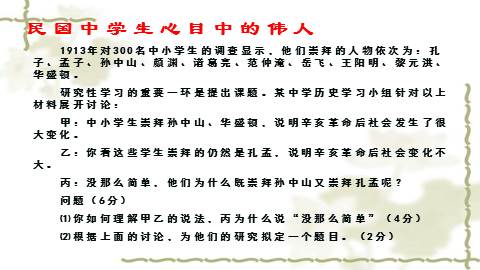 民国中学生心目中的伟人
1913年对300名中小学生的调查显示，他们崇拜的人物依次为：孔
子、孟子、孙中山、颜渊、诸葛亮、范仲淹、岳飞、王阳明、黎元洪、
华盛顿。
研究性学习的重要一环是提出课题。某中学历史学习小组针对以上
材料展开讨论：
甲：中小学生崇拜孙中山、华盛顿，说明辛亥革命后社会发生了很
大变化。
乙：你看这些学生崇拜的仍然是孔孟，说明辛亥革命后社会变化不
大。
丙：没那么简单，他们为什么既崇拜孙中山又崇拜孔孟呢？
问题（6分）
⑴你如何理解甲乙的说法，丙为什么说“没那么简单”（4分）
⑵根据上面的讨论，为他们的研究拟定一个题目。（2分）